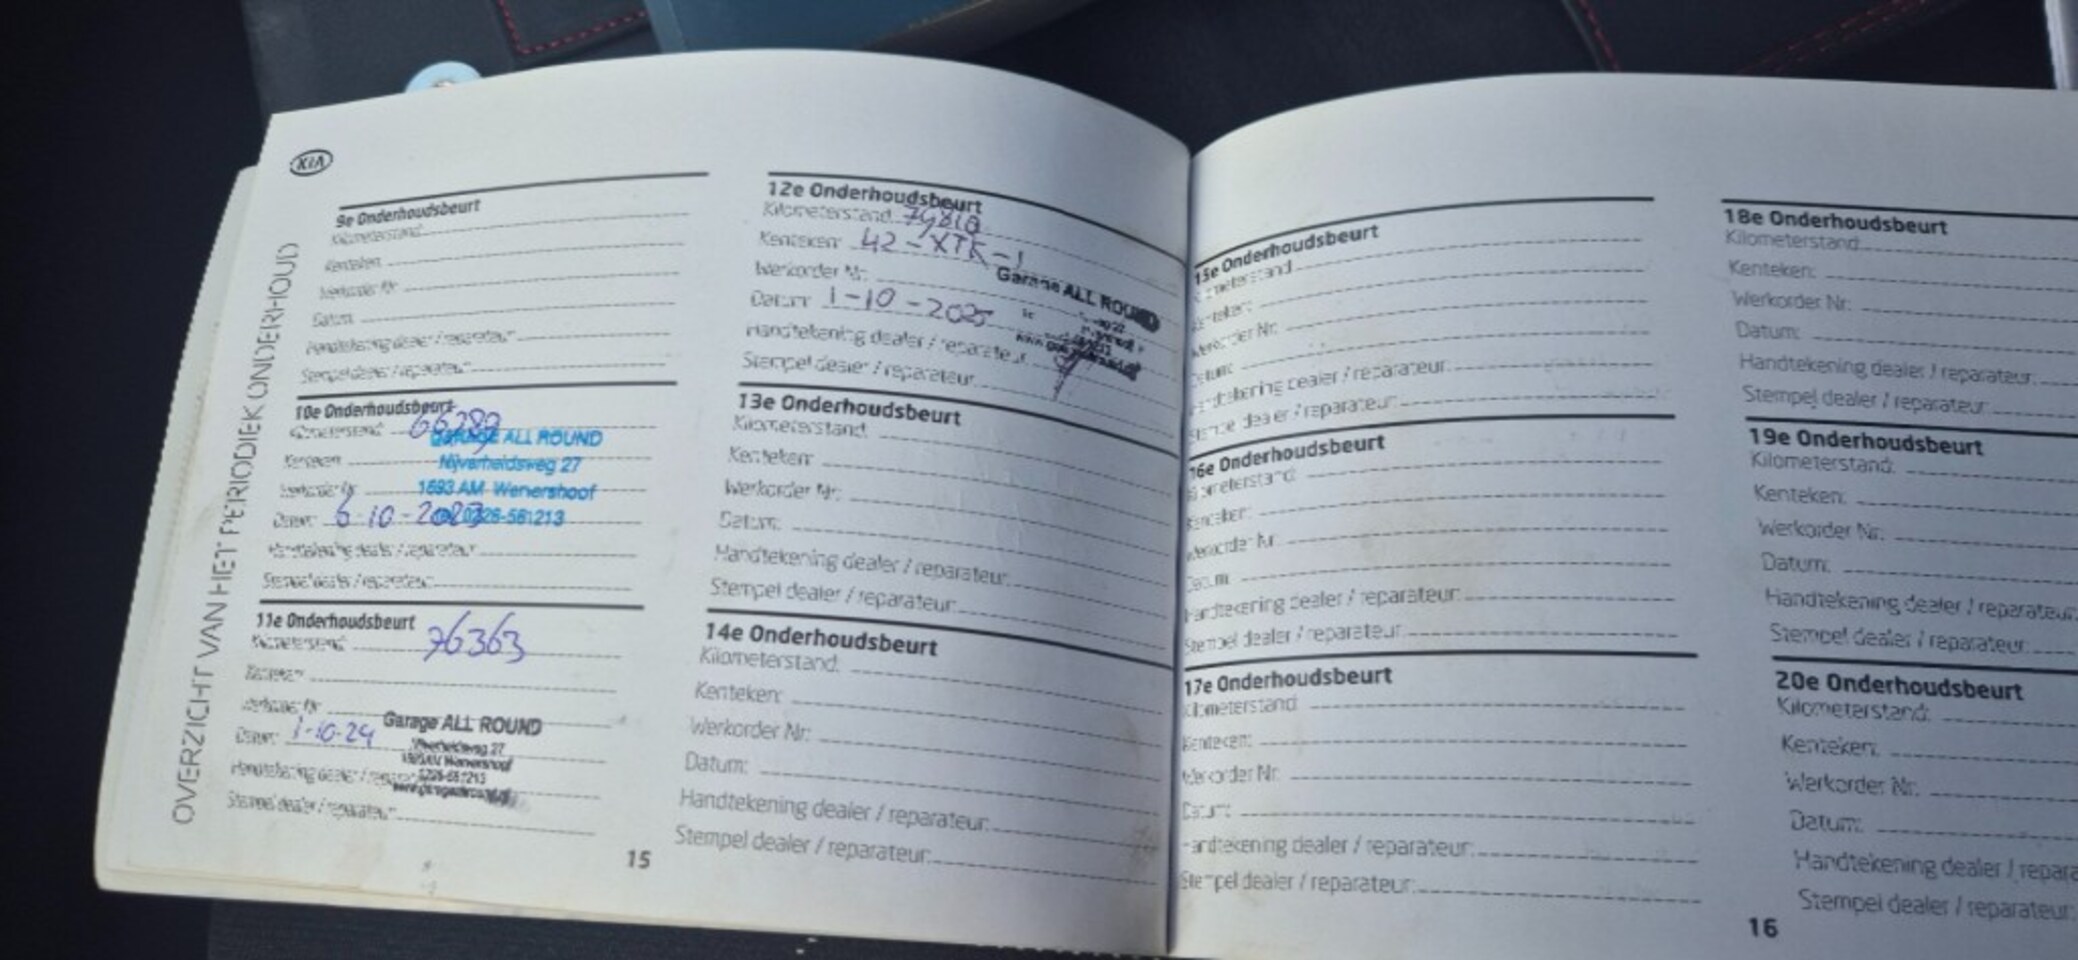 KIA
OVERZICHT VAN HET PERIODIEK ONDERHOUD
9e Onderhoudsbeurt
Kilometerstand:
Kenteken:
Werkorder Nr:
Datum:
Handtekening dealer / reparateur:
Stempel dealer / reparateur:
10e Onderhoudsbeurt
Kilometerstand: 66289
GARAGE ALL ROUND
Kenteken:
Nijverheidsweg 27
Werkorder Nr:
1693 AM Wervershoof
Datum: 6-10-2023
0228-581213
Handtekening dealer / reparateur:
Stempel dealer / reparateur:
11e Onderhoudsbeurt
Kilometerstand: 76363
Kenteken:
Werkorder Nr:
Datum: 1-10-24
Garage ALL ROUND
Nijverheidsweg 27
Wervershoof
Handtekening dealer / reparateur:
Stempel dealer / reparateur:
15
12e Onderhoudsbeurt
Kilometerstand:
Kenteken: 42-XTK-1
Werkorder Nr:
Garage ALL ROUND
Datum: 1-10-2025
Handtekening dealer / reparateur:
Stempel dealer / reparateur:
13e Onderhoudsbeurt
Kilometerstand:
Kenteken:
Werkorder Nr:
Datum:
Handtekening dealer / reparateur:
Stempel dealer / reparateur:
14e Onderhoudsbeurt
Kilometerstand:
Kenteken:
Werkorder Nr:
Datum:
Handtekening dealer / reparateur:
Stempel dealer / reparateur:
15e Onderhoudsbeurt
Kilometerstand:
Kenteken:
Werkorder Nr:
Datum:
Handtekening dealer / reparateur:
Stempel dealer / reparateur:
16e Onderhoudsbeurt
Kilometerstand:
Kenteken:
Werkorder Nr:
Datum:
Handtekening dealer / reparateur:
Stempel dealer / reparateur:
17e Onderhoudsbeurt
Kilometerstand:
Kenteken:
Werkorder Nr:
Datum:
Handtekening dealer / reparateur:
Stempel dealer / reparateur:
18e Onderhoudsbeurt
Kilometerstand:
Kenteken:
Werkorder Nr:
Datum:
Handtekening dealer / reparateur:
Stempel dealer / reparateur:
19e Onderhoudsbeurt
Kilometerstand:
Kenteken:
Werkorder Nr:
Datum:
Handtekening dealer / reparateur:
Stempel dealer / reparateur:
20e Onderhoudsbeurt
Kilometerstand:
Kenteken:
Werkorder Nr:
Datum:
Handtekening dealer / repara
Stempel dealer / reparateur:
16